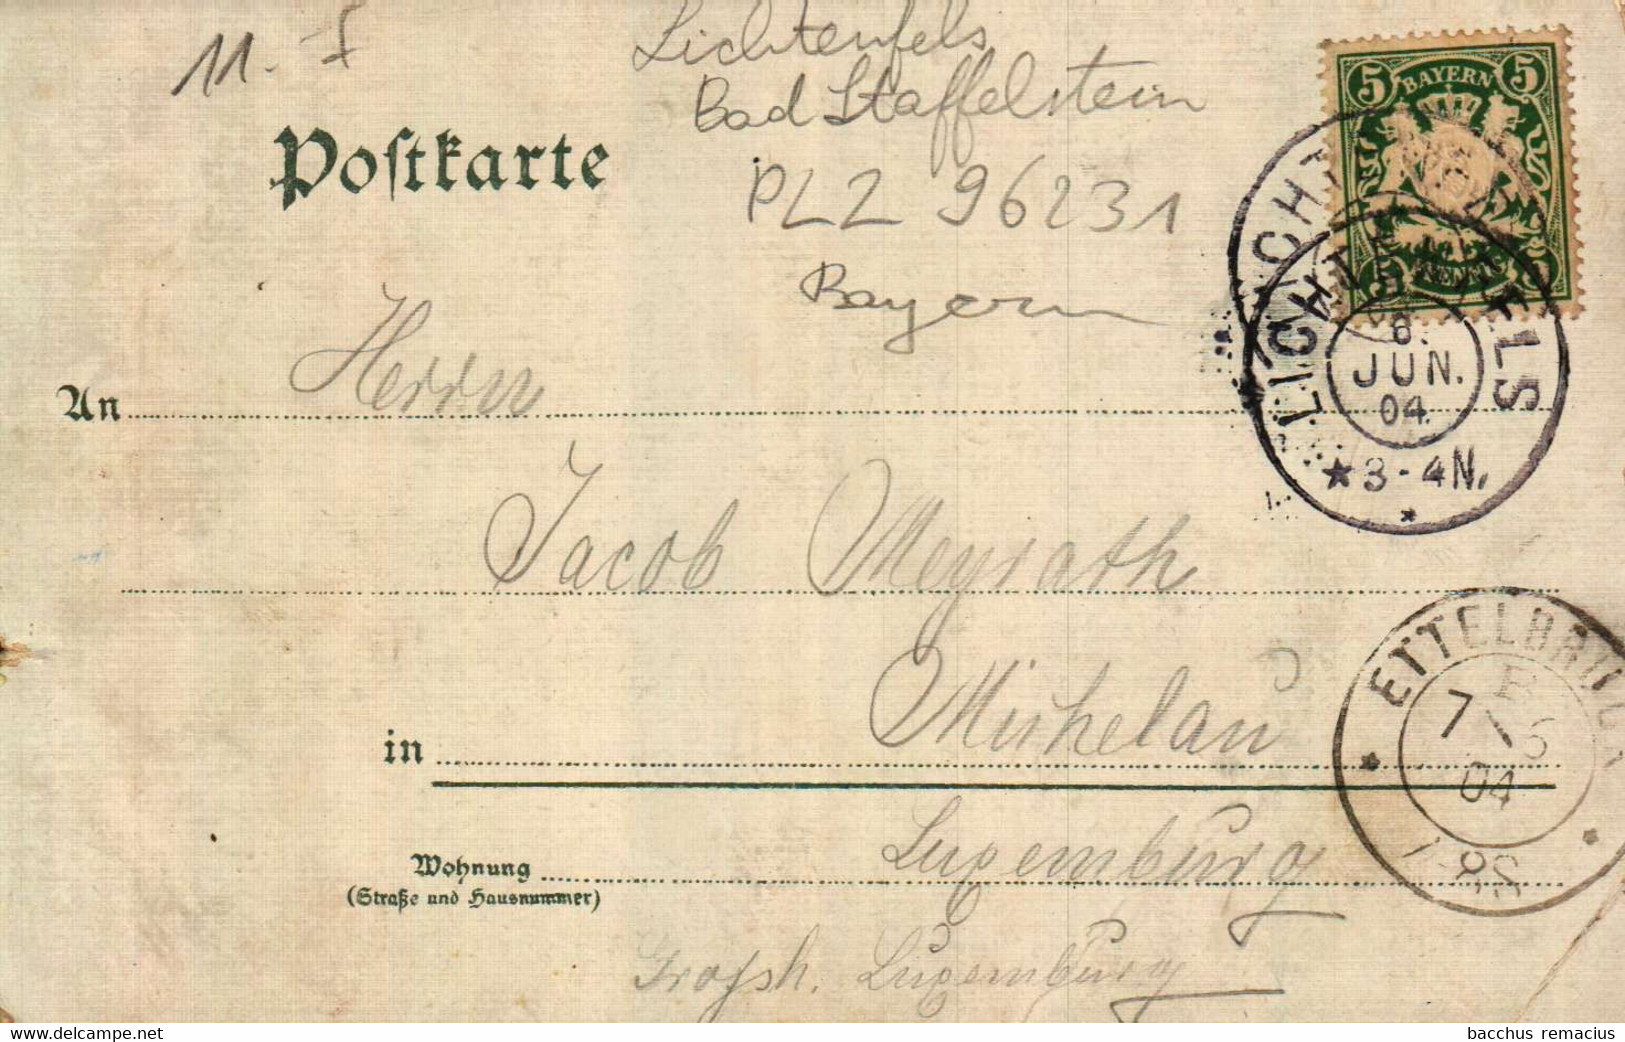 11. I
Lichtenfels
Bad Staffelstein
PLZ 96231
Bayern
Postkarte
5 BAYERN 5
5 PFENNIG 5
LICHTENFELS
6.
JUN.
04
3-4N.
An Herrn
Jacob Meyrath
in Michelau
Luxemburg
Wohnung
(Straße und Hausnummer)
Grossh. Luxemburg
ETTELBRUCK
7/6
04
7-8S
delcampe.net
bacchus remacius